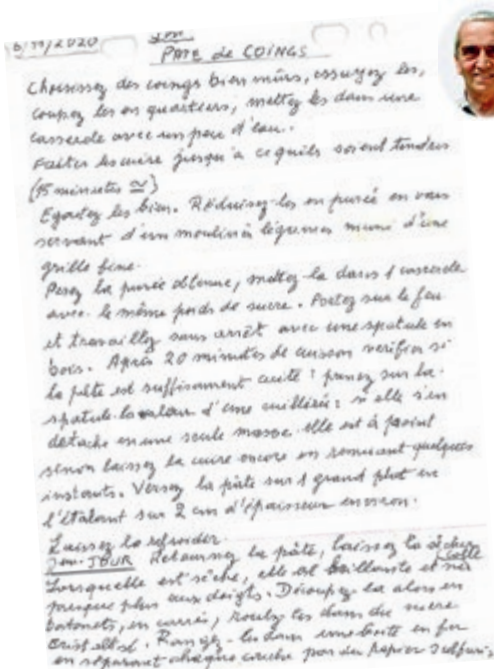 /2020
PATE de COINGS
Choisissez des coings bien mûrs, essuyez les,
coupez les en quartiers, mettez les dans une
casserole avec un peu d'eau.
Faites les cuire jusqu'à ce quils soient tendres
(15 minutes ≃)
Egoutez les bien. Réduisez-les en purée en vous
servant d'un moulin à légumes muni d'une
grille fine.
Pesez la purée obtenue, mettez-la dans 1 casserole
avec le même poids de sucre. Portez sur le feu
et travaillez sans arrêt avec une spatule en
bois. Après 20 minutes de cuisson verifiez si
la pâte est suffisamment cuite : prenez sur la
spatule la valeur d'une cuillère : si elle s'en
détache en une seule masse elle est à point
sinon laissez la cuire encore en remuant quelques
instants. Versez la pâte sur 1 grand plat en
l'étalant sur 2 cm d'épaisseur environ.
Laissez la refroidir.
JOUR Retournez la pâte, laissez la sécher
Lorsquelle est sèche, elle est brillante et ne colle
presque plus aux doigts. Découpez la alors en
batonets, en carrés, roulez les dans du sucre
cristallisé. Rangez-les dans une boîte en fer
en séparant chaque couche par du papier sulfuris